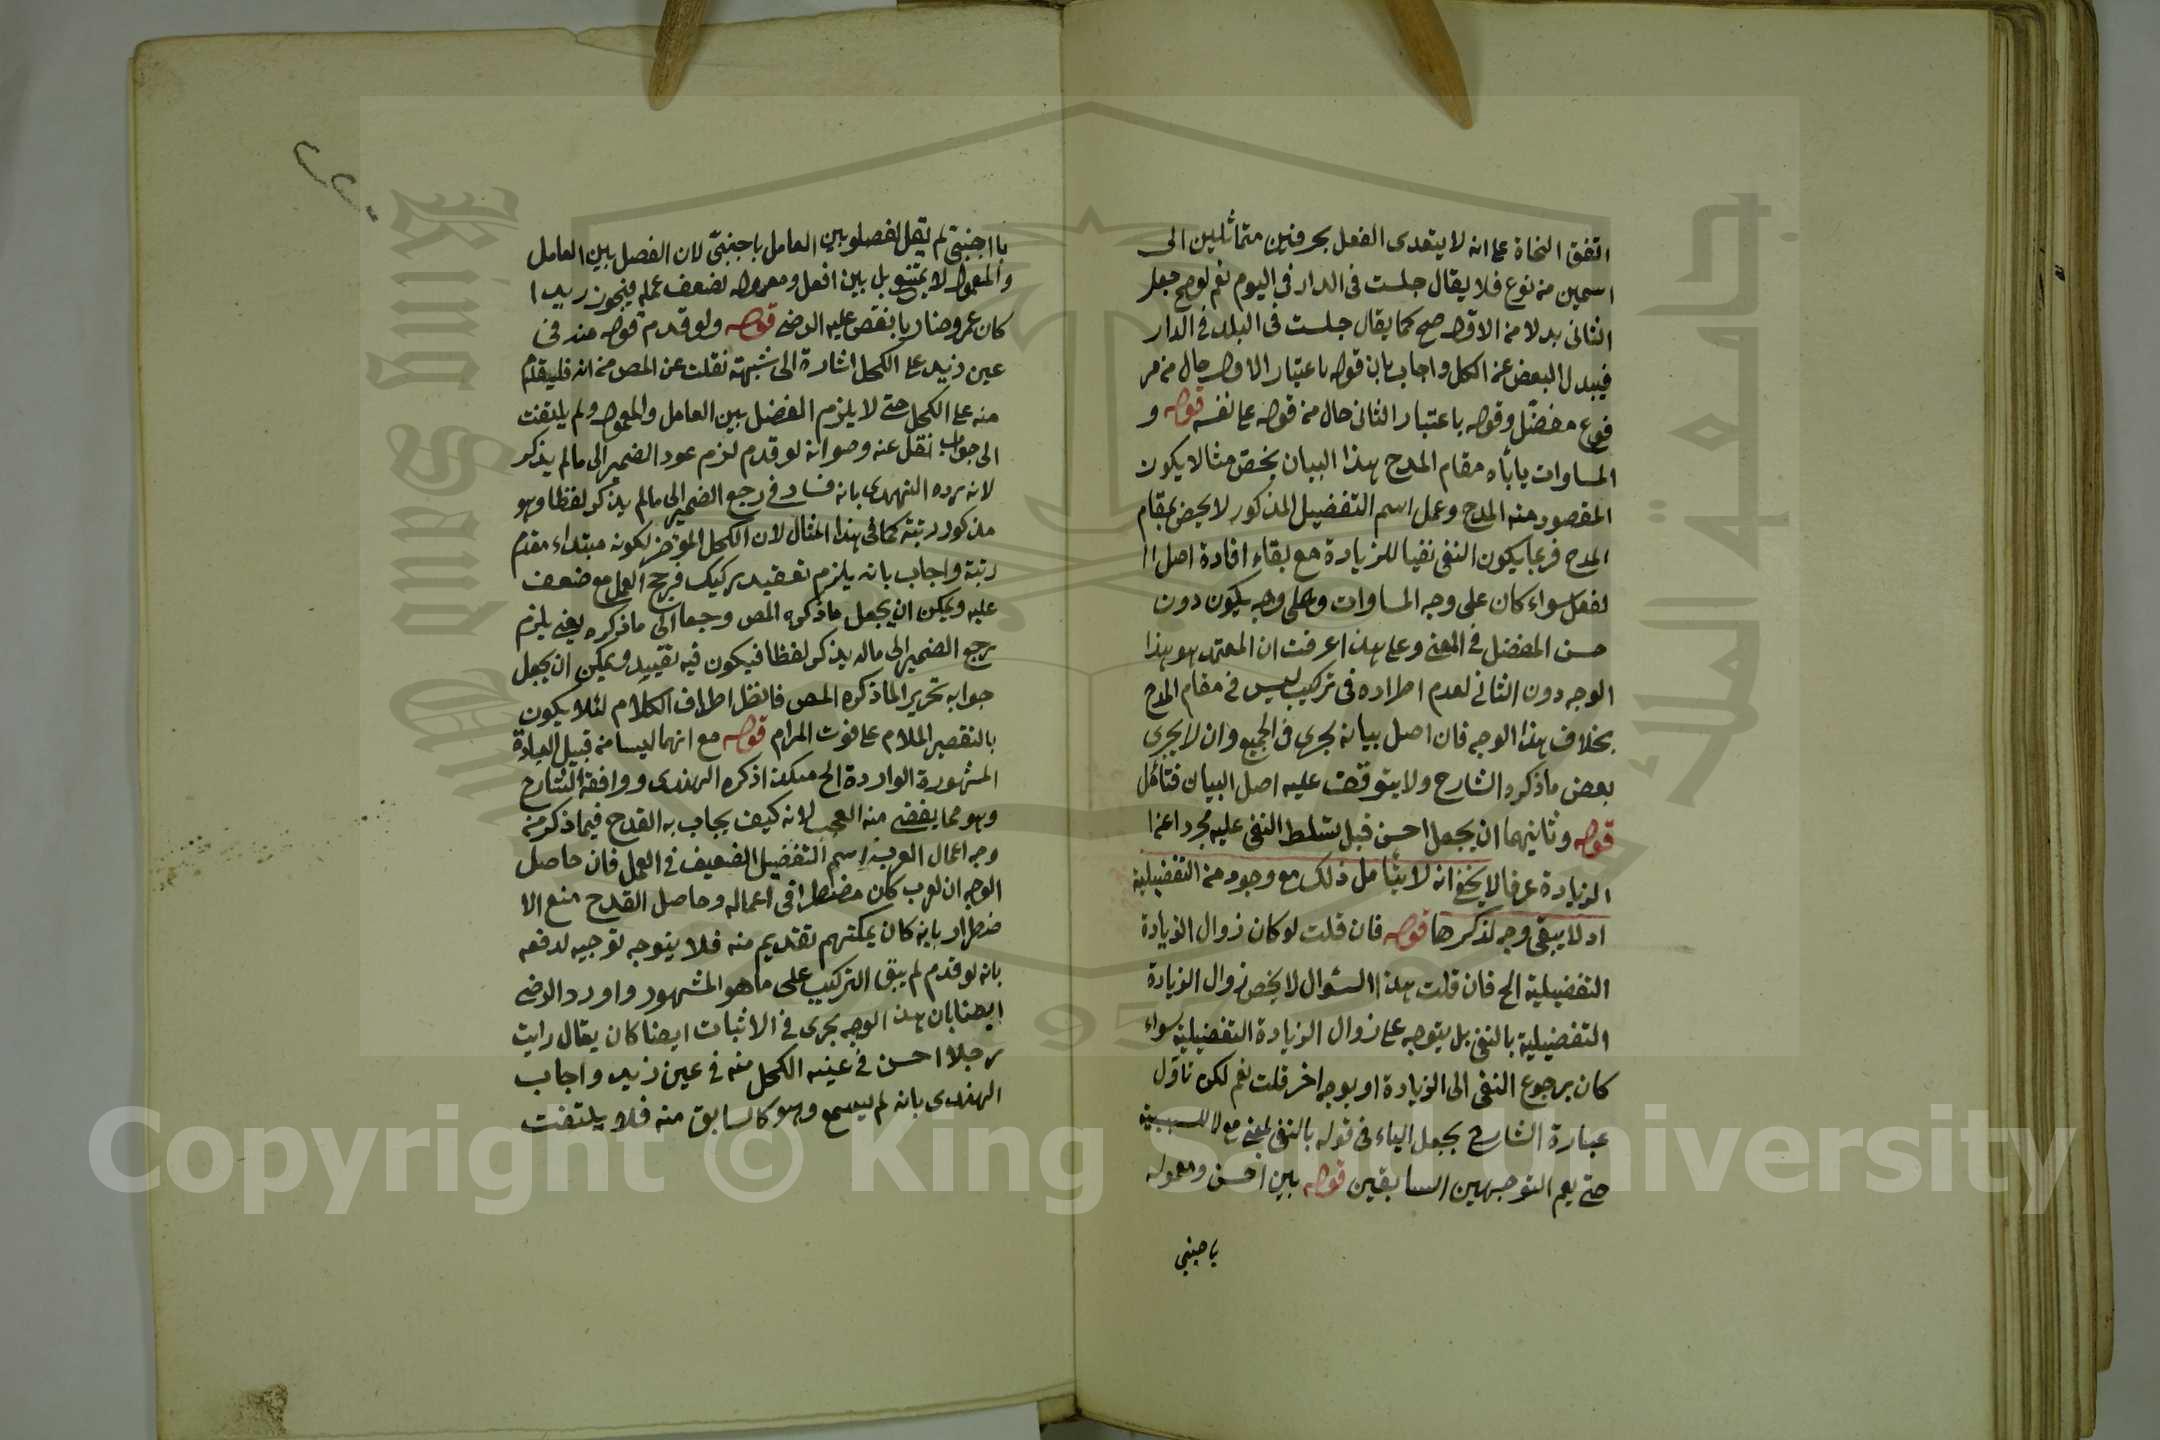 اتفق النحاة على انه لا يتعدى الفعل بحرفين متماثلين الى
اسمين من نوع فلا يقال جلست في الدار في اليوم نعم لوصح جعل
الثاني بدلا من الاول صح كما يقال جلست في البلد في الدار
فيبدل البعض عن الكل واجاب بان قوله باعتبار الاول حال من مر
فوع مفضل وقوله باعتبار الثاني حال من قوله على نفسه قوله و
المساوات ياباه مقام المدح هذا البيان يخص مثالا يكون
المقصود منه المدح وعمل اسم التفضيل المذكور لا يخص بمقام
المدح فربما يكون النفي نفيا للزيادة مع بقاء افادة اصل ا
لفعل سواء كان على وجه المساوات وعلى وجه يكون دون
حسن المفضل في المعنى وعلى هذا عرفت ان المعتمد هو هذا
الوجه دون الثاني لعدم اطراده في تركيب ليس في مقام المدح
بخلاف هذا الوجه فان اصل بيانه يجرى في الجميع وان لا يجرى
بعض ماذكره الشارح ولا يتوقف عليه اصل البيان فتأمل
قوله وثانيهما ان يجعل احسن قبل تسلط النفي عليه مجردا عن ا
الزيادة عرفا لا يخفى انه لا يتأمل ذلك مع وجود من التفضيلية
اد لا يبقى وجه لذكرها قوله فان قلت لو كان زوال الزيادة
التفضيلية الح فان قلت هذا السؤال لا يخص زوال الزيادة
التفضيلية بالنفي بل يتوجه على زوال الزيادة التفضيلية سواء
كان برجوع النفي الى الزيادة او بوجه اخر قلت نعم لكن تاول
عبارة الشارح بجعل الباء في قوله بالنفي بمعنى مع لا للسببية
حتى يعم التوجيهين السابقين قوله بين احسن ومعموله
باجنبي
با اجنبي لم يقل لفصلو بين العامل باجنبي لان الفصل بين العامل
والمعمول لا يمتنع بل بين افعل ومعموله لضعف عمله فيجوز زيدا
كان عمرو ضاربا نقض عليه الرضى قوله ولو قدم قوله منه في
عين زيد على الكحل اشارة الى شبهة نقلت عن المص من انه فليقدم
منه على الكحل حتى لا يلزم الفصل بين العامل والمعمول ولم يلتفت
الى جواب نقل عنه وهو انه لو قدم لزم عود الضمير الى مالم يذكر
لانه رده الهندى بانه فساد في رجع الضمير الى مالم يذكر لفظا وهو
مذكور رتبة كما في هذا المثال لان الكحل المؤخر لكونه مبتداء مقدم
رتبة واجاب بانه يلزم تعقيد ركيك فرجح العمل مع ضعف
عليه ويمكن ان يجعل ماذكره المص وجعا الى ماذكره يعني يلزم
رجع الضمير الى ماله يذكر لفظا فيكون فيه تقييد ويمكن ان يجعل
جوابه تحرير الماذكره المص فانظر اطراف الكلام لئلا يكون
بالتقصير الملام على فوت المرام قوله مع انهما ليسا من قبيل العبارة
المشهورة الواردة الح هكذا ذكره الهندى ووافقه الشارح
وهو مما يقضى منه العجب لانه كيف يجاب به القدح فيما ذكر من
وجه اعمال العرب اسم التفضيل الضعيف في العمل فان حاصل
الوجه ان العرب كان مضطرا في اعماله وحاصل القدح منع الا
ضطرار بانه كان يمكنهم تقديم منه فلا يتوجه توجيه لدفعه
بانه لو قدم لم يبق التركيب على ماهو المشهور واورد الرضى
ايضا بان هذا الوجه يجرى في الاثبات ايضا كان يقال رايت
رجلا احسن في عينه الكحل منه في عين زيد واجاب
الهندى بانه لم يسمع وهو كالسابق منه فلا يلتفت
Copyright © King Saud University